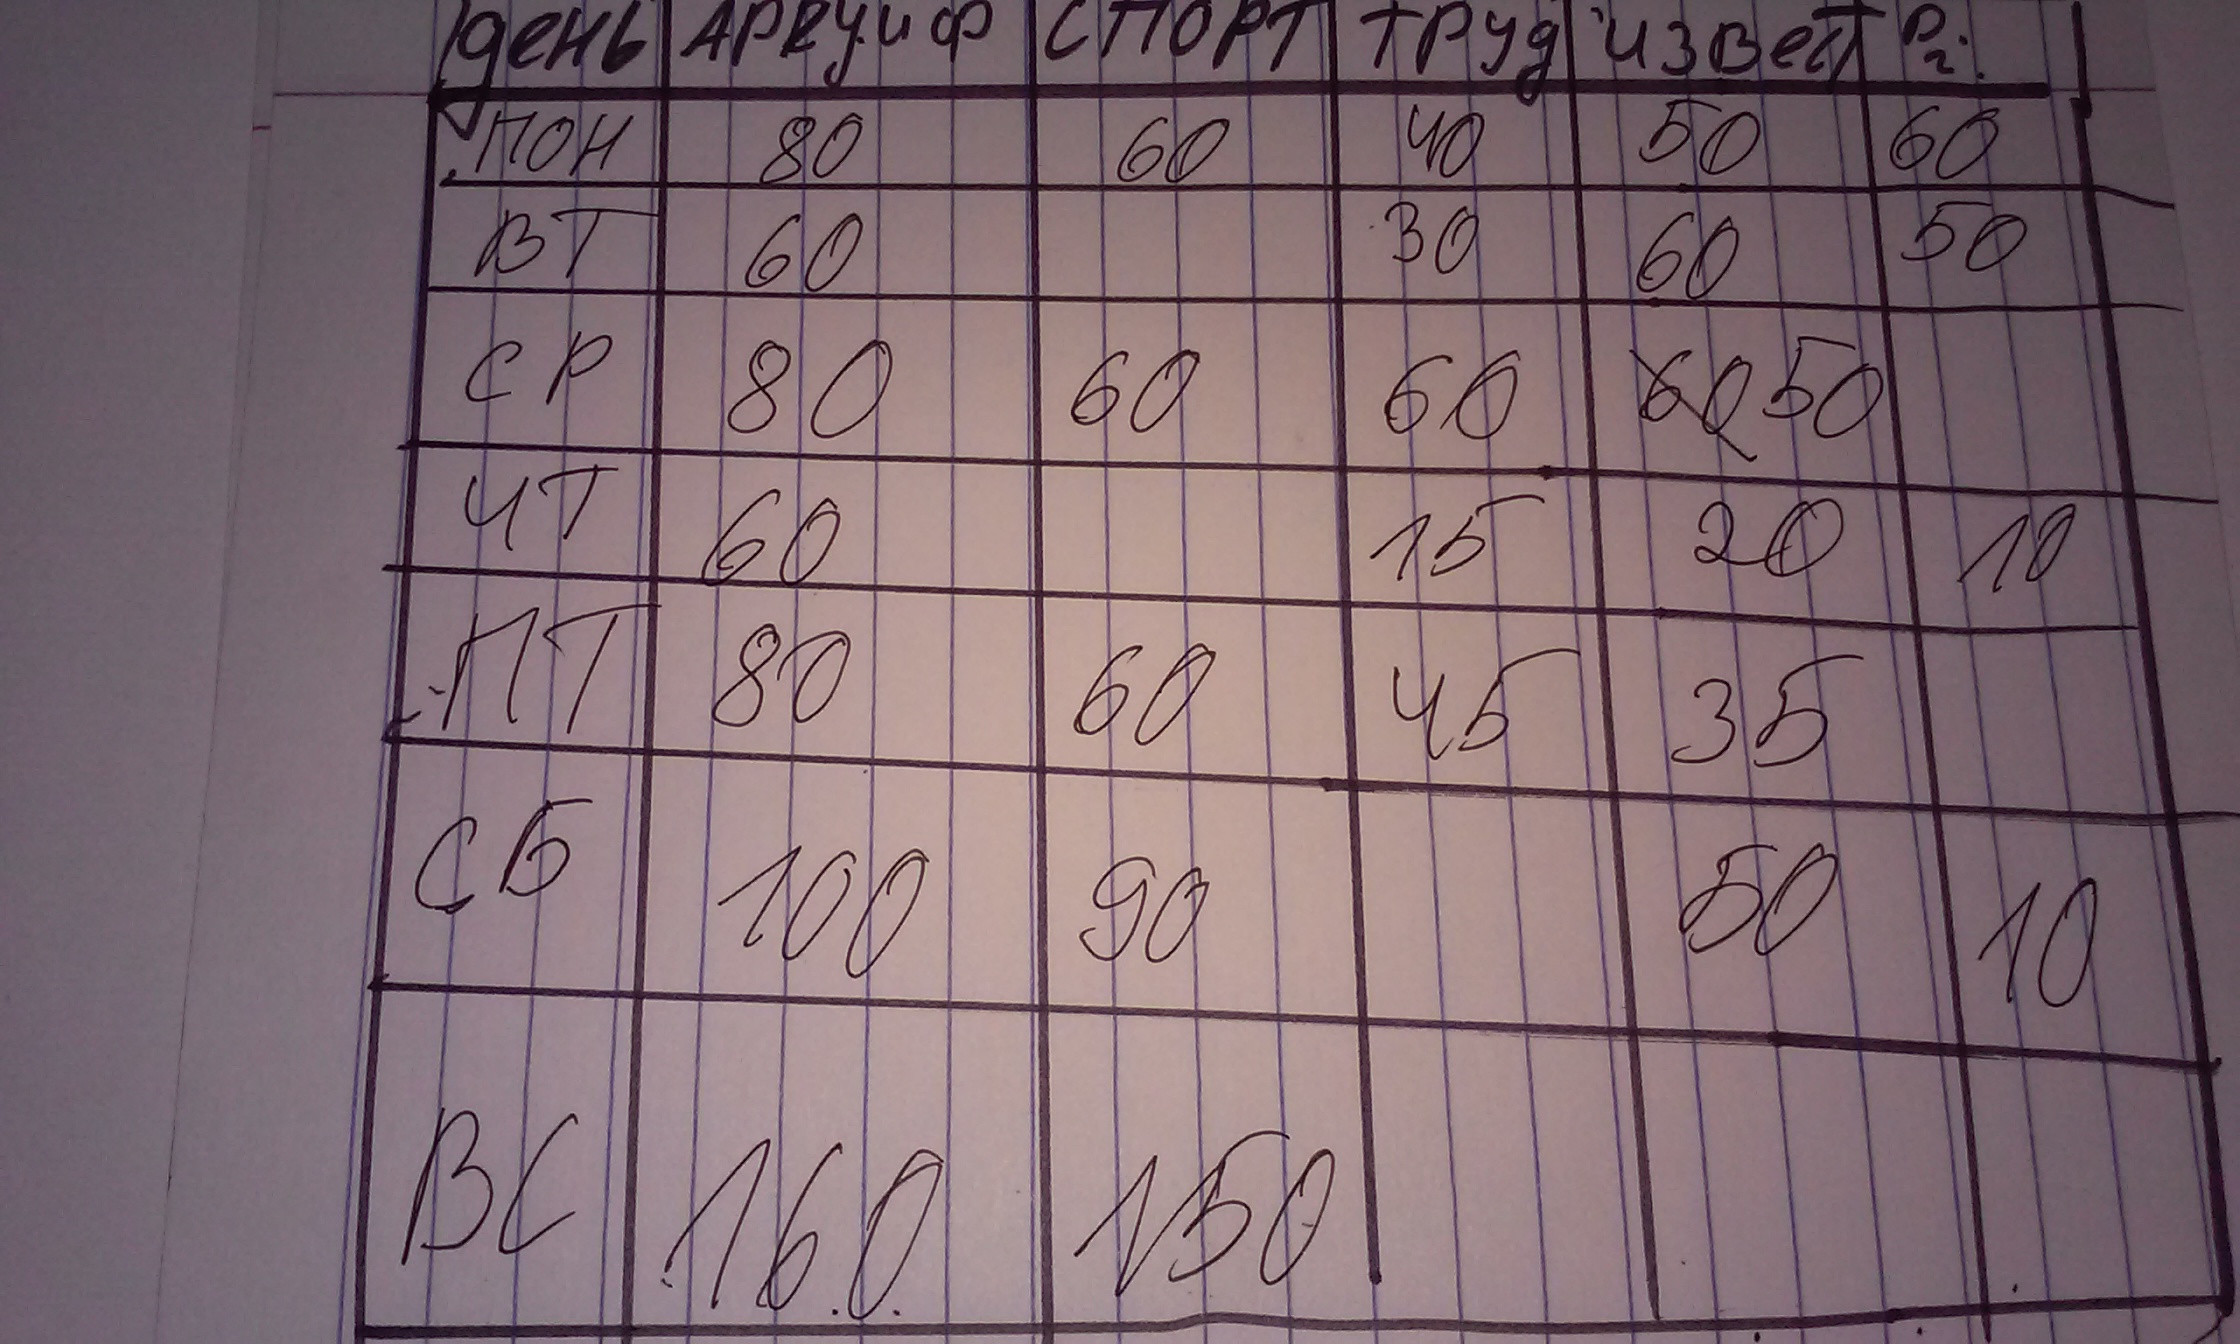 день АРГУиФ СПОРТ ТРУД ИЗВЕСТ Р.г.
ПОН 80 60 40 50 60
ВТ 60 30 60 50
СР 80 60 60 60 50
ЧТ 60 15 20 10
ПТ 80 60 45 35
СБ 100 90 50 10
ВС 160 150